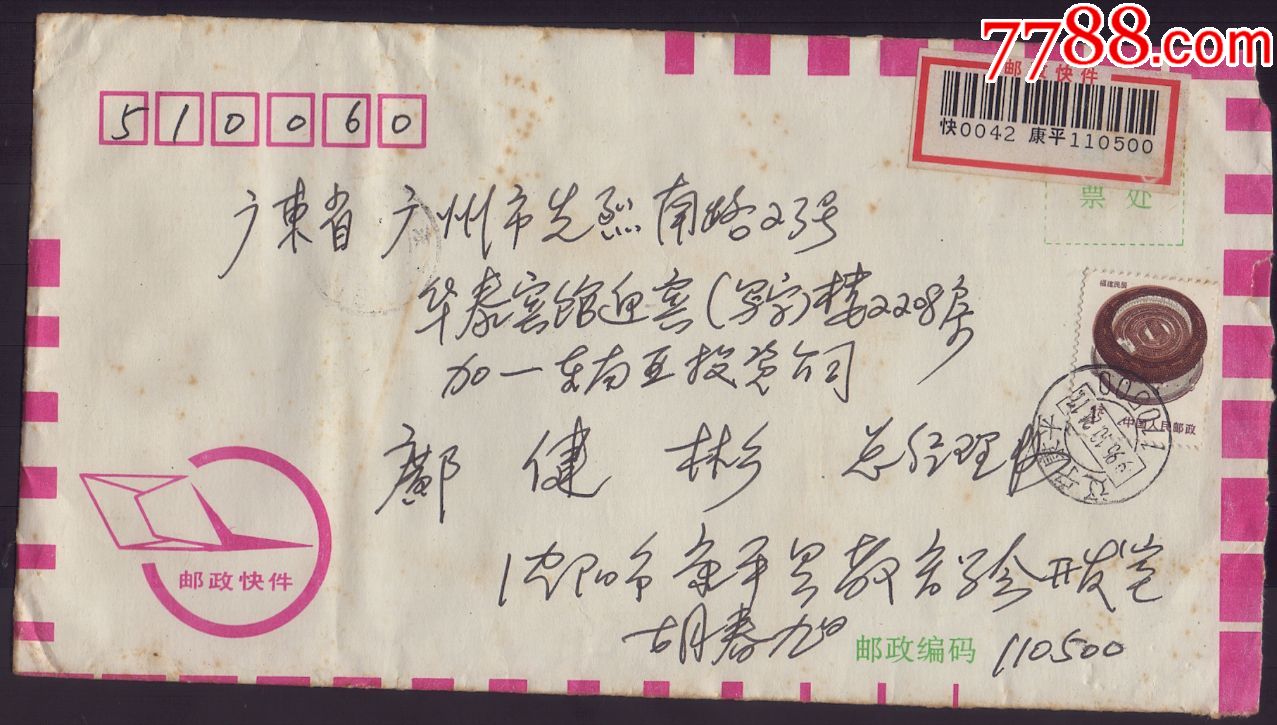 7788.com
邮政快件
快0042 康平110500
510060
票处
广東省广州市先烈南路23号
华泰宾馆迎宾(写字)楼2208房
加一东南亚投资公司
福建民居
中国人民邮政
鄺健彬 总经理
110500
辽宁康平
邮政快件
沈阳市康平县 开发
胡春旭
邮政编码 110500